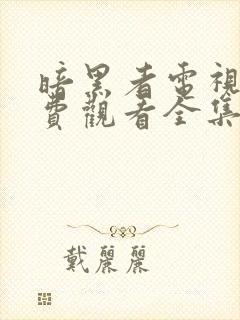 暗黑者電視
費觀看全集
戴麗麗